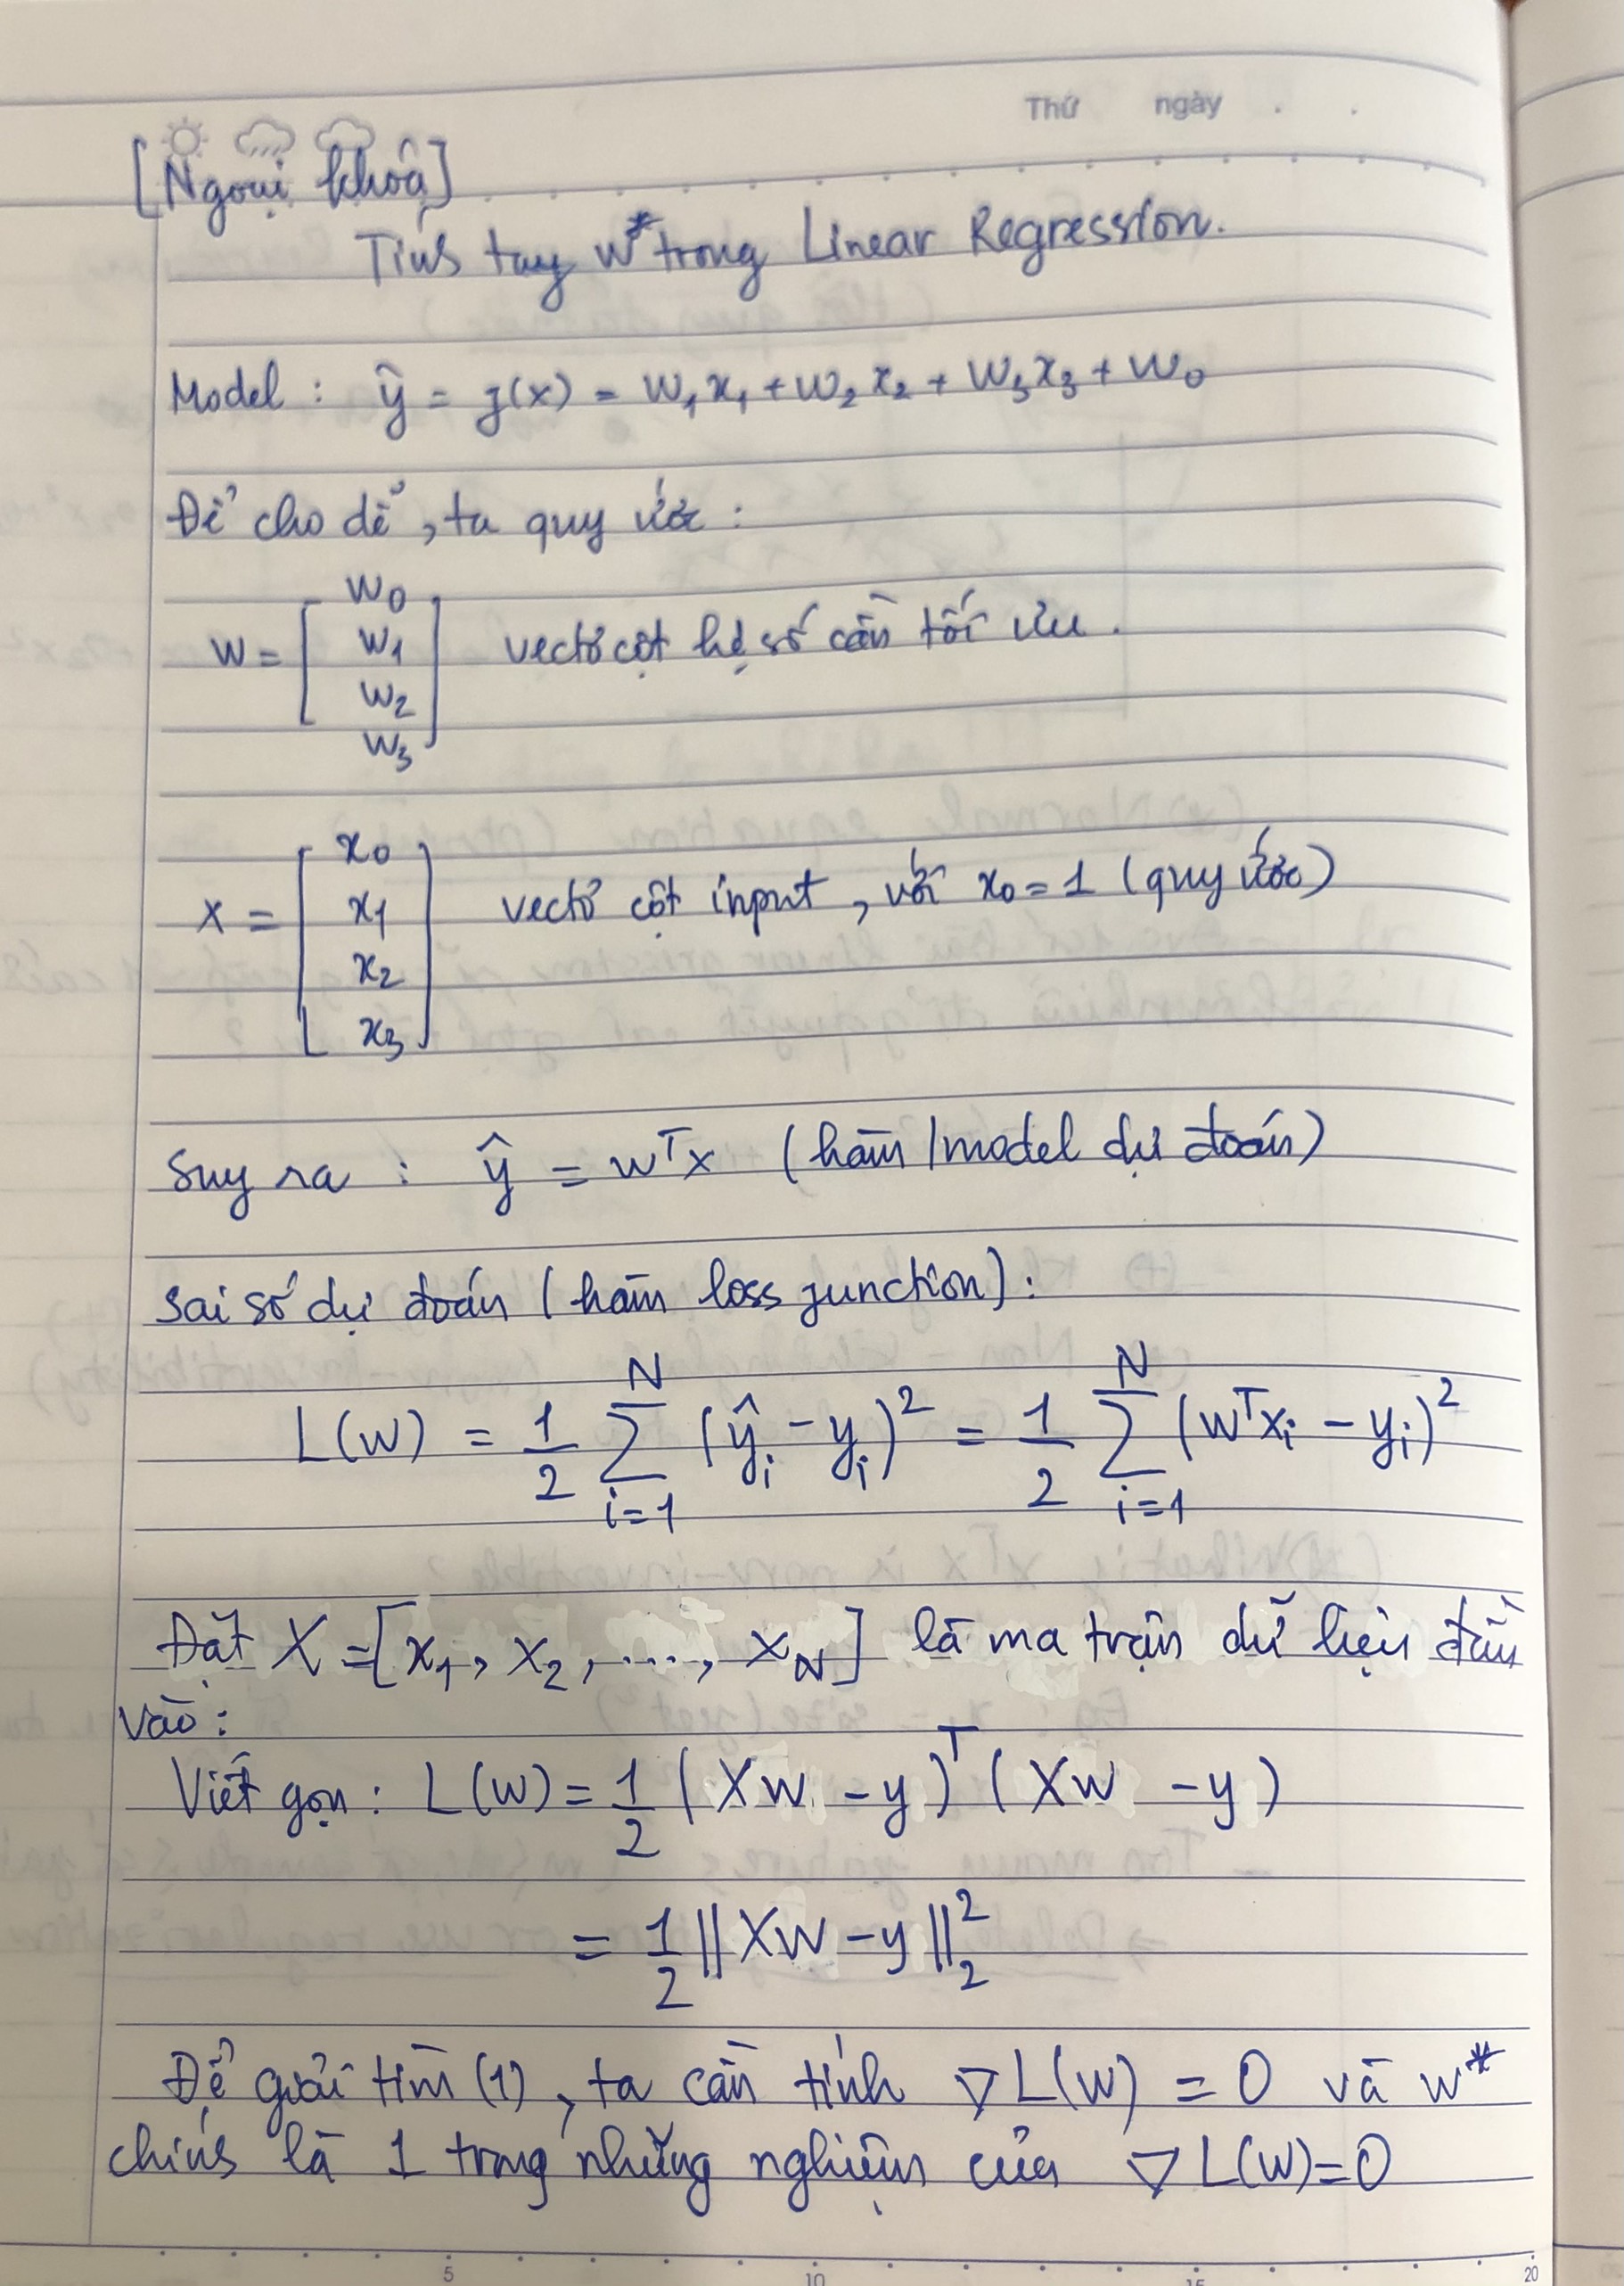 Thứ ngày . .
[Ngoại khoá]
Tính tay w* trong Linear Regression.
Model : ŷ = f(x) = w₁x₁ + w₂x₂ + w₃x₃ + w₀
Để cho dễ, ta quy ước :
w = [ w₀ w₁ w₂ w₃ ] vectơ cột hệ số cần tối ưu.
x = [ x₀ x₁ x₂ x₃ ] vectơ cột input, với x₀ = 1 (quy ước)
Suy ra : ŷ = wᵀx (hàm/model dự đoán)
Sai số dự đoán (hàm loss function) :
L(w) = 1/2 ∑_{i=1}^{N} (ŷᵢ - yᵢ)² = 1/2 ∑_{i=1}^{N} (wᵀxᵢ - yᵢ)²
Đặt X = [x₁, x₂, ..., x_N] là ma trận dữ liệu đầu
vào :
Viết gọn : L(w) = 1/2 (Xw - y)ᵀ (Xw - y)
= 1/2 ||Xw - y||₂²
Để giải tìm (1), ta cần tính ∇L(w) = 0 và w*
chính là 1 trong những nghiệm của ∇L(w)=0
5 10 15 20